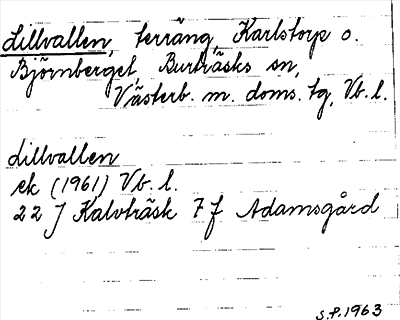 Lillvallen, terräng, Karlstorp o.
Björnberget, Burträsks sn,
Västerb. m. doms. tg, Vb. l.
Lillvallen
ek (1961) Vb. l.
22 J Kalvträsk 7 f Adamsgård
S.P. 1963